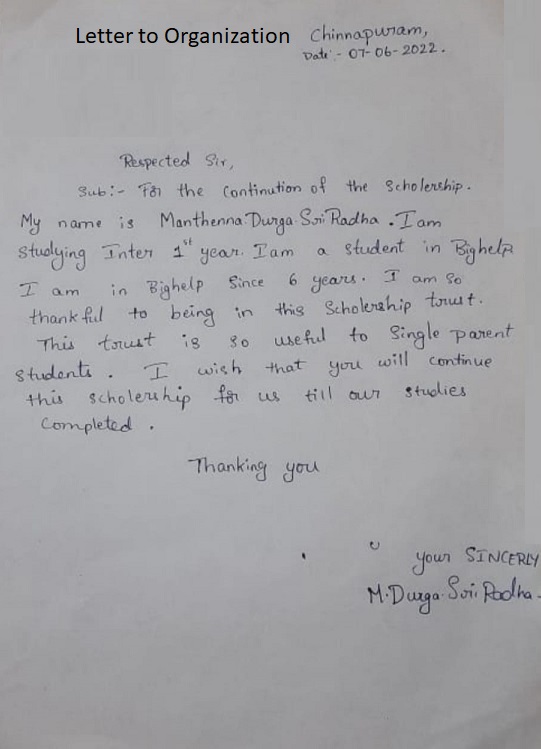 Letter to Organization Chinnapuram,
Date:- 07-06-2022.
Respected Sir,
Sub:- For the continution of the Scholership.
My name is Manthenna.Durga.Sri Radha. I am
studying Inter 1st year. I am a student in Bighelp
I am in Bighelp Since 6 years. I am so
thankful to being in this Scholership trust.
This trust is so useful to Single parent
students. I wish that you will continue
this scholership for us till our studies
Completed.
Thanking you
your SINCERLY
M.Durga.Sri.Radha.